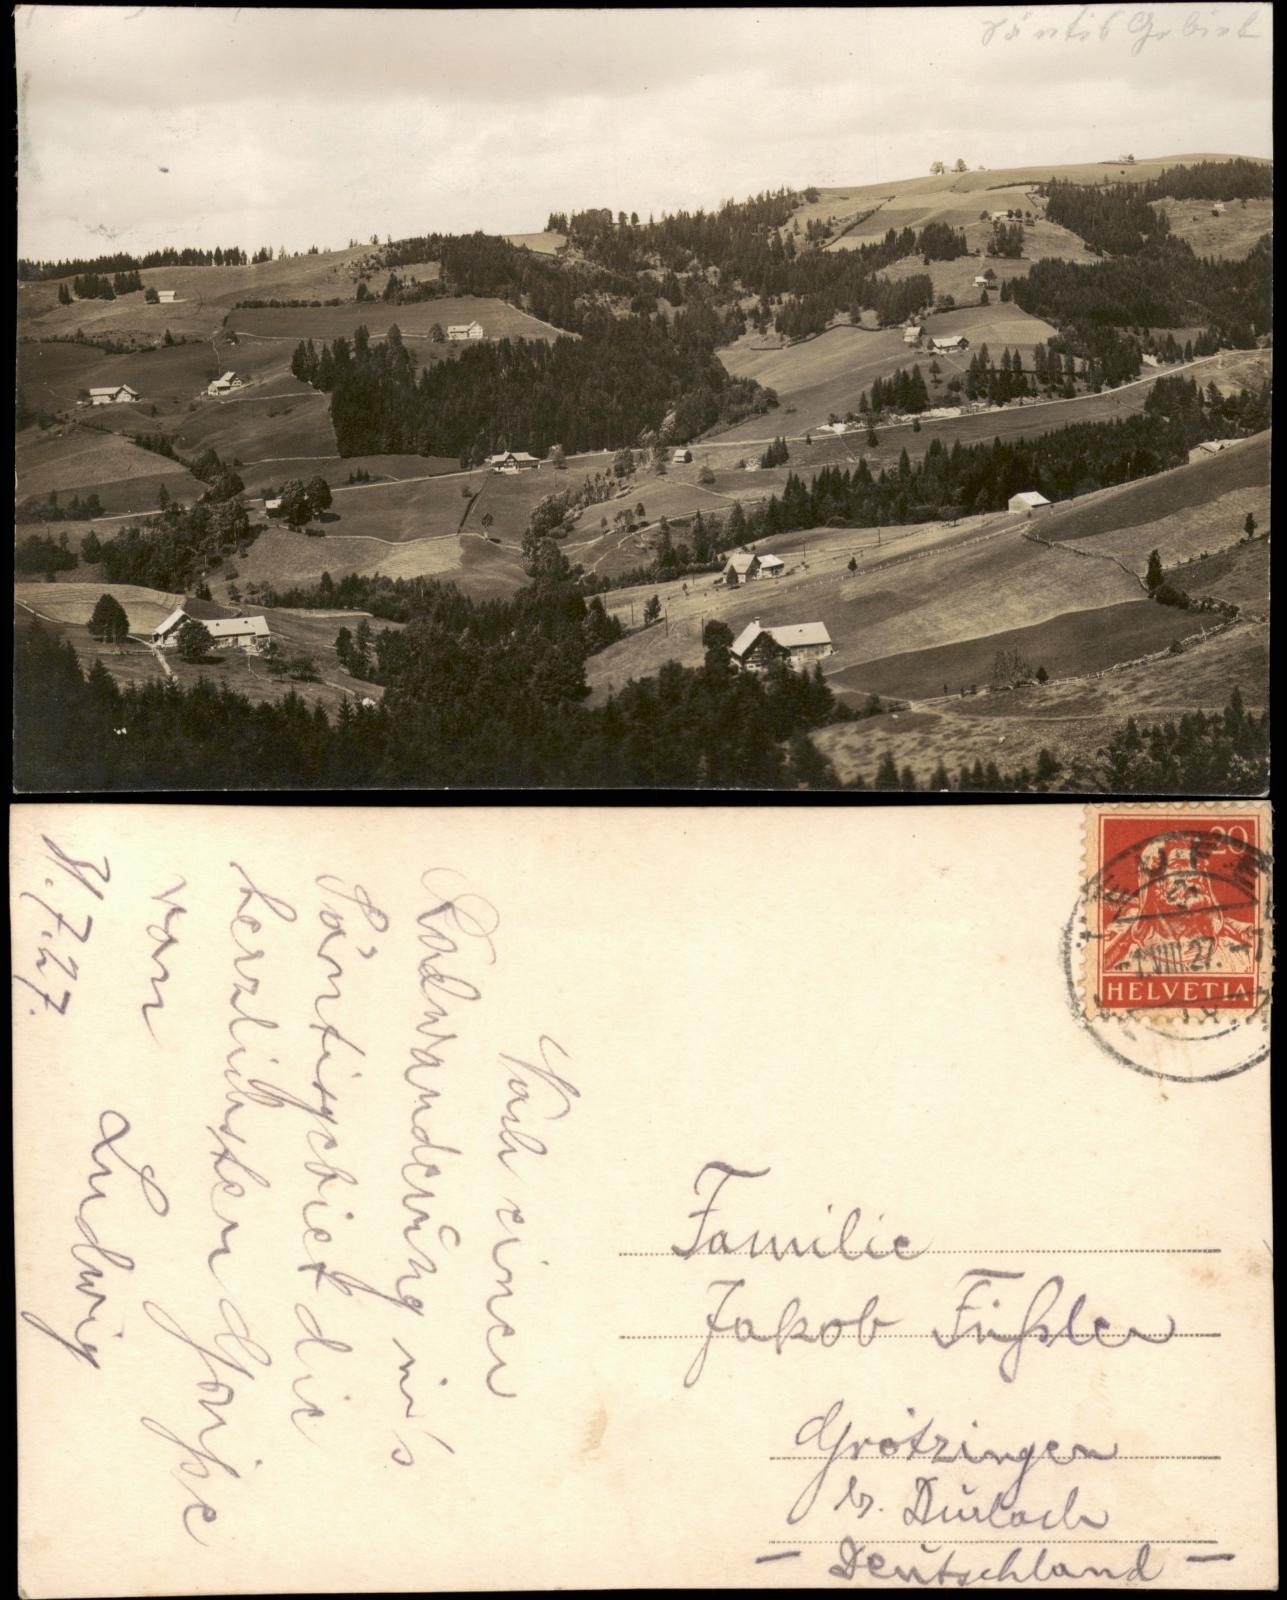 Säntis Gebiet
20
HELVETIA
TEUFEN
-1.VIII.27.
Nach einer
Radwanderung in's
Säntisgebiet die
herzlichsten Grüße
von
Ludwig
31.7.27.
Familie
Jakob Füßler
Grötzingen
b. Durlach
- Deutschland -